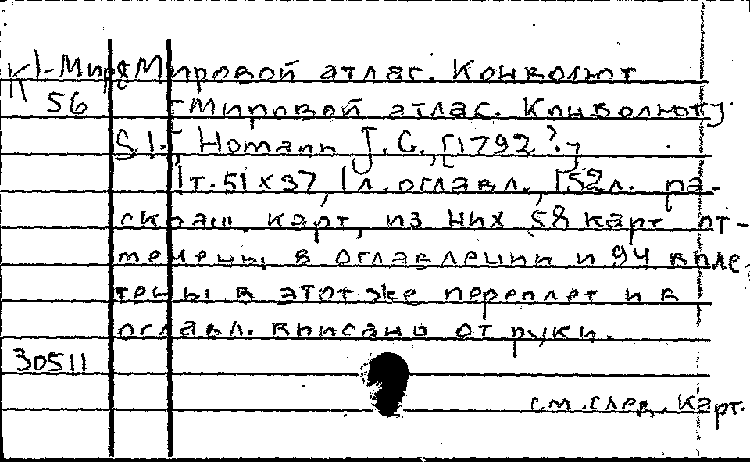 К1-Мир Мировой атлас. Конволют
56 [Мировой атлас. Конволют].
S.l., Homann J. G., [1792?]
1 т. 51×37, 1 л. оглавл., 152 л. ра-
скраш. карт, из них 58 карт от-
мечены в оглавлении и 94 впле-
тены в этот же переплет и в
оглавл. вписаны от руки.
30511
см. след. карт.